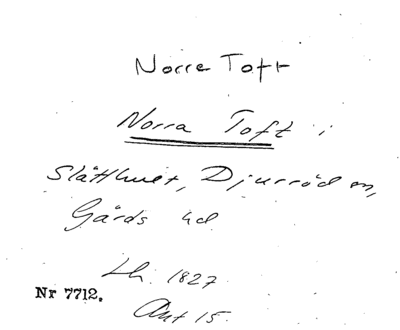 Norra Toft
Norra Toft i
Slätthult, Djurröd sn,
Gärds hd
Lh. 1827
Nr 7712.
Akt 15.